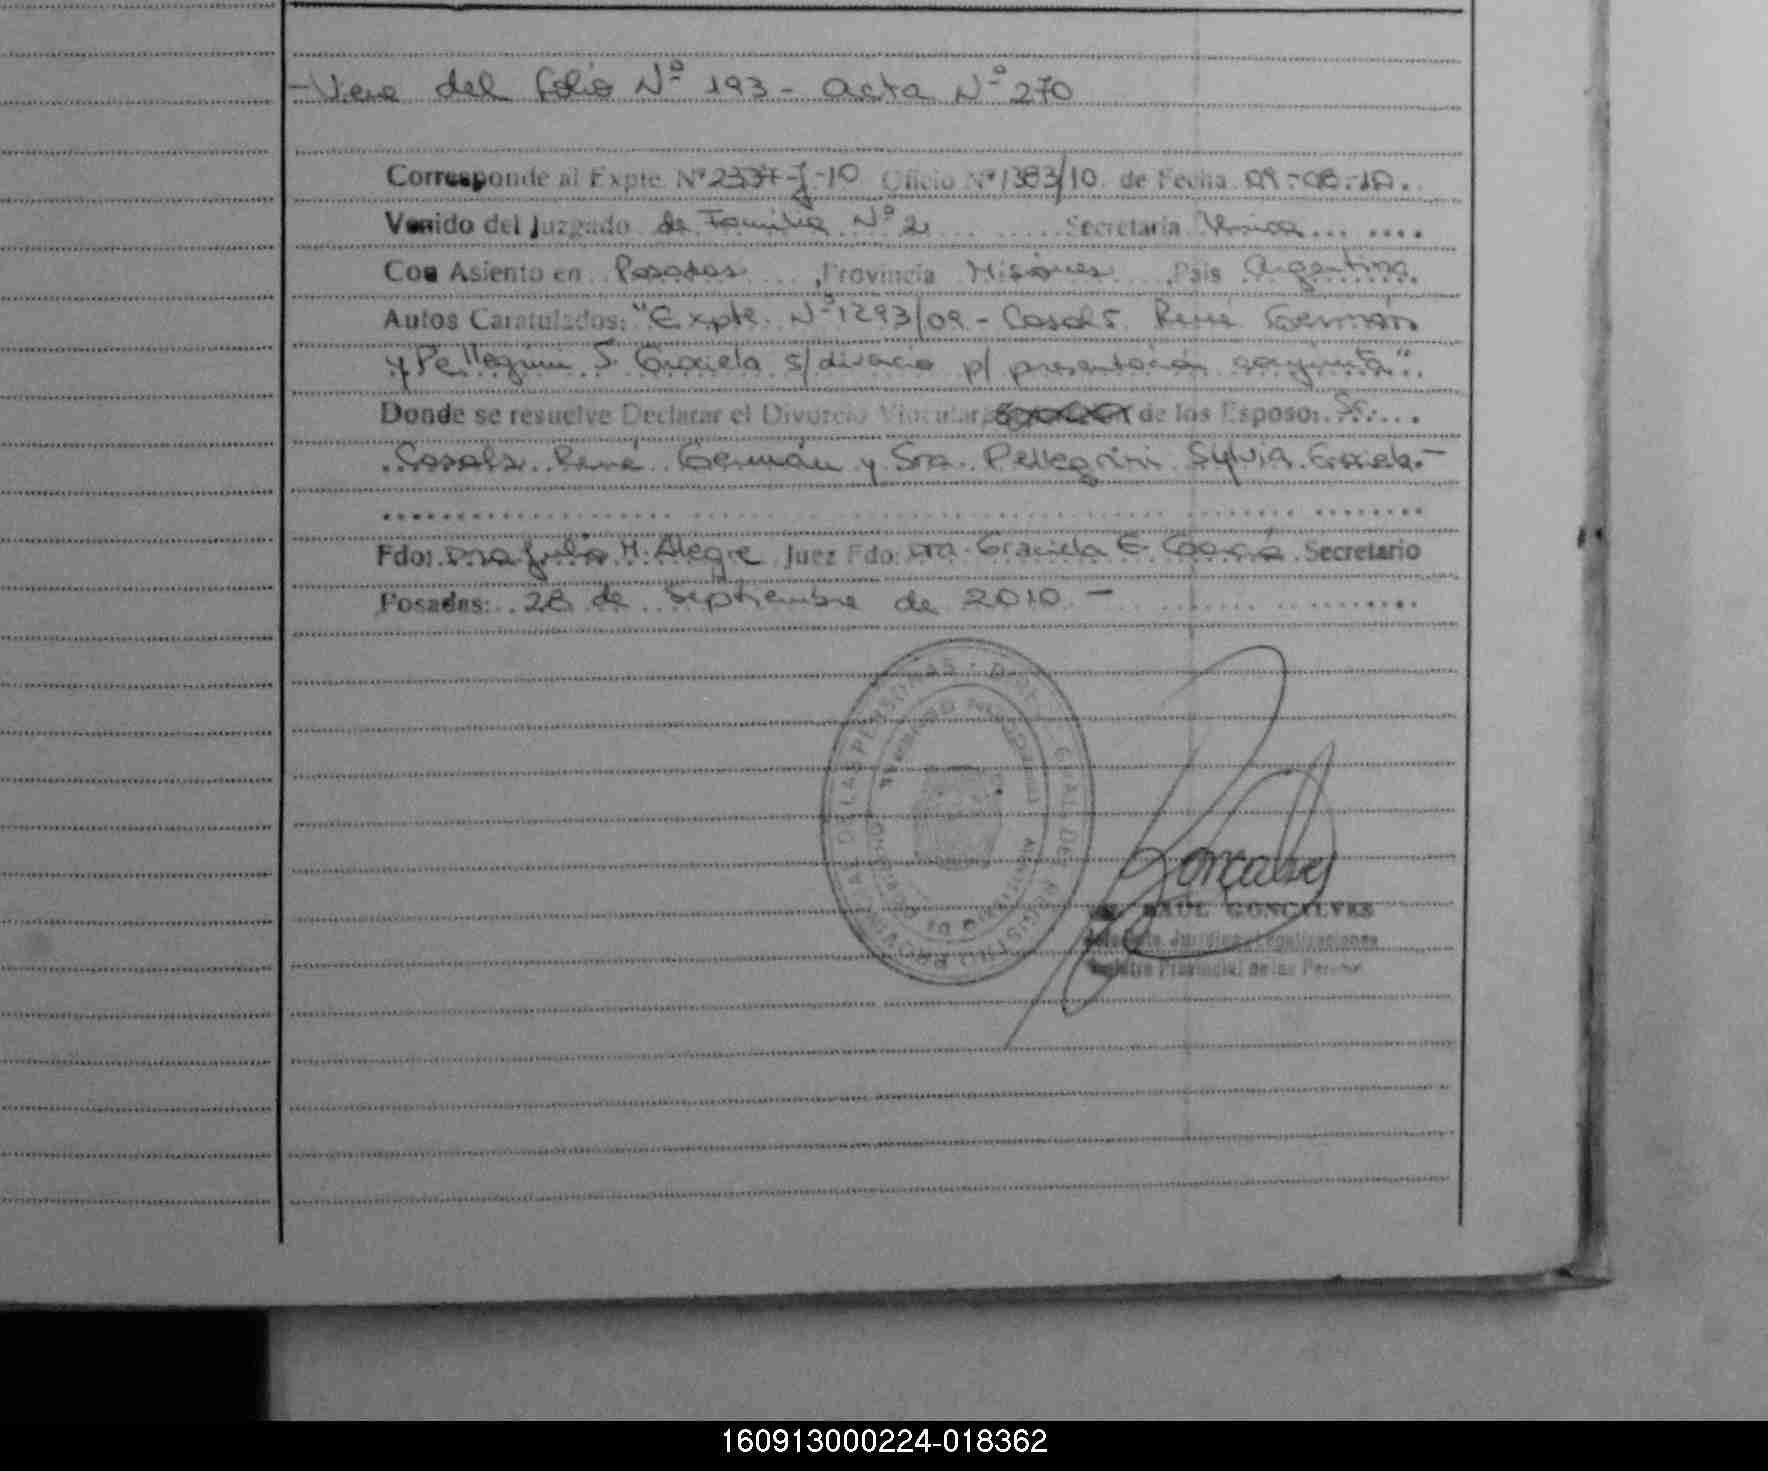 -Viene del folio Nº 193 - acta Nº 270
Corresponde al Expte. Nº 2337-J-10 Oficio Nº 1383/10. de Fecha 09-08-10.
Venido del Juzgado de Familia Nº 2 Secretaría Única
Con Asiento en Posadas, Provincia Misiones, País Argentina.
Autos Caratulados: "Expte. Nº 1293/09 - Casals René Germán
y Pellegrini S. Graciela s/divorcio p/ presentación conjunta".
Donde se resuelve Declarar el Divorcio Vincular de los Esposos Sr.
Casals René Germán y Sra. Pellegrini Sylvia Graciela.-
Fdo: Dra Julia H. Alegre Juez Fdo: Dra. Graciela E. Secretario
Posadas: 28 de Septiembre de 2010.-
DIREC. GRAL. DEL REGISTRO PROVINCIAL DE LAS PERSONAS
MINISTERIO DE GOBIERNO
Gonçalves
RAUL GONÇALVES
Jurídico Legalizaciones
Registro Provincial de las Personas
160913000224-018362